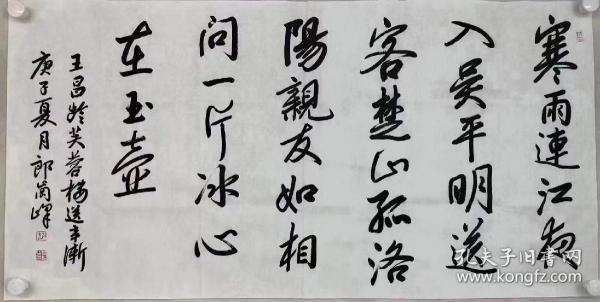 寒雨連江夜
入吳平明送
客楚山孤洛
陽親友如相
問一片冰心
在玉壺
王昌龄芙蓉楼送辛漸
庚子夏月郎
孔夫子旧书网
www.kongfz.com